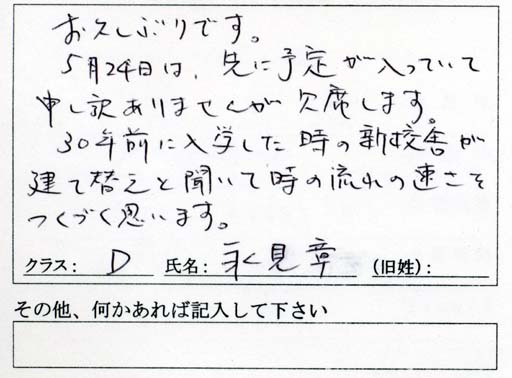 お久しぶりです。
5月24日は、先に予定が入っていて
申し訳ありませんが欠席します。
30年前に入学した時の新校舎が
建て替えと聞いて時の流れの速さを
つくづく思います。
クラス: D 氏名: 永見章 (旧姓):
その他、何かあれば記入して下さい